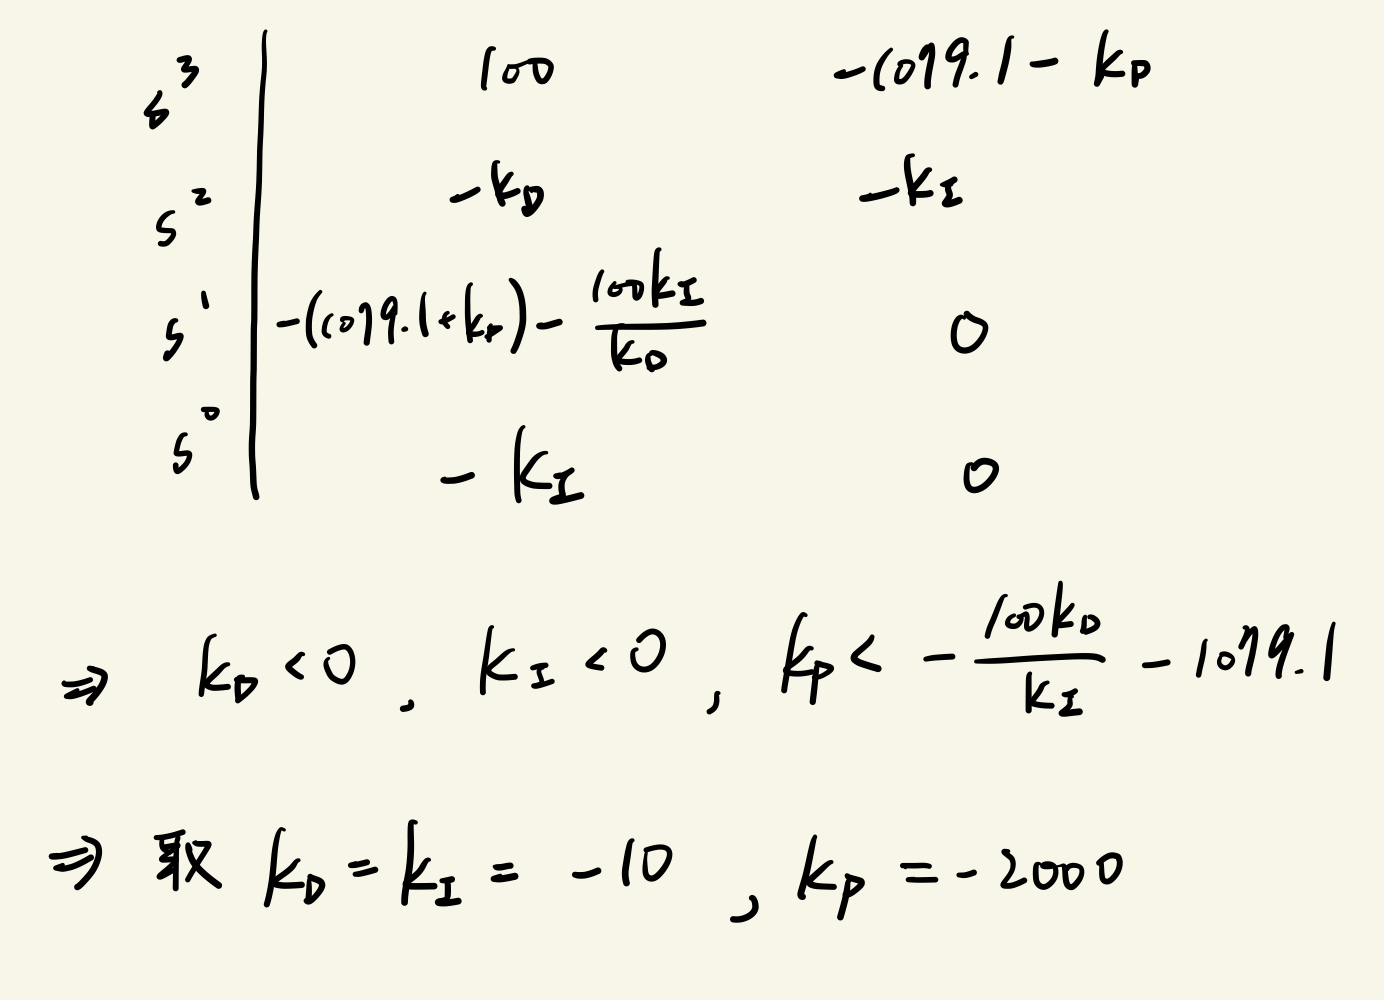 s³ | 100 -1079.1 - k_P
s² | -k_D -k_I
s¹ | -(1079.1+k_P) - 100k_I/k_D 0
s⁰ | -k_I 0
⇒ k_D < 0 , k_I < 0 , k_P < - 100k_D/k_I - 1079.1
⇒ 取 k_D = k_I = -10 , k_P = -2000